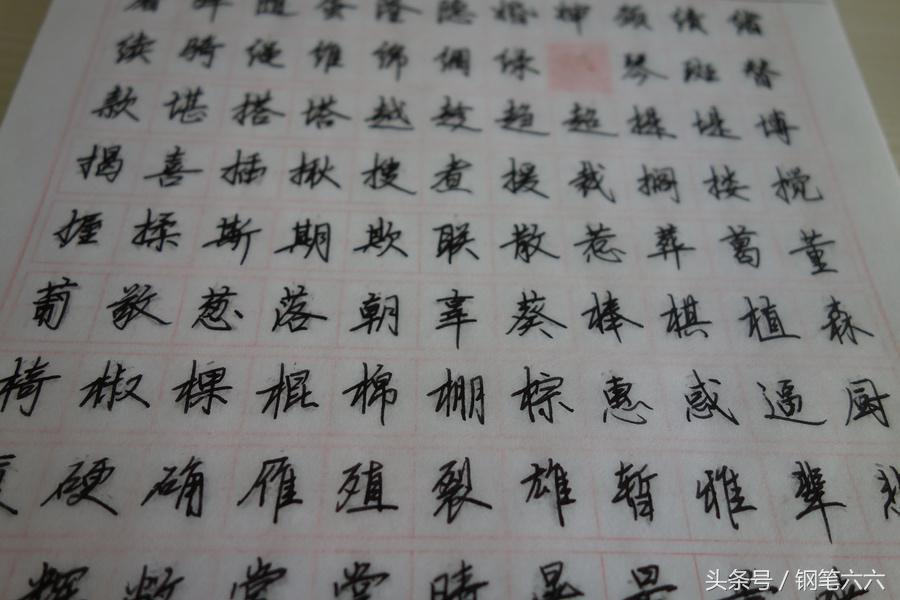 随蛋隆隐婚婶颈绩绪
续骑绳维绵绸绿琴斑替
款堪搭塔越趁趋超提堤博
揭喜插揪搜煮援裁搁搂搅
握揉斯期欺联散惹葬葛董
葡敬葱落朝辜葵棒棋植森
椅椒棵棍棉棚棕惠惑逼厨
硬确雁殖裂雄暂雅辈悲
辉敞赏掌晴暑最
头条号 / 钢笔六六